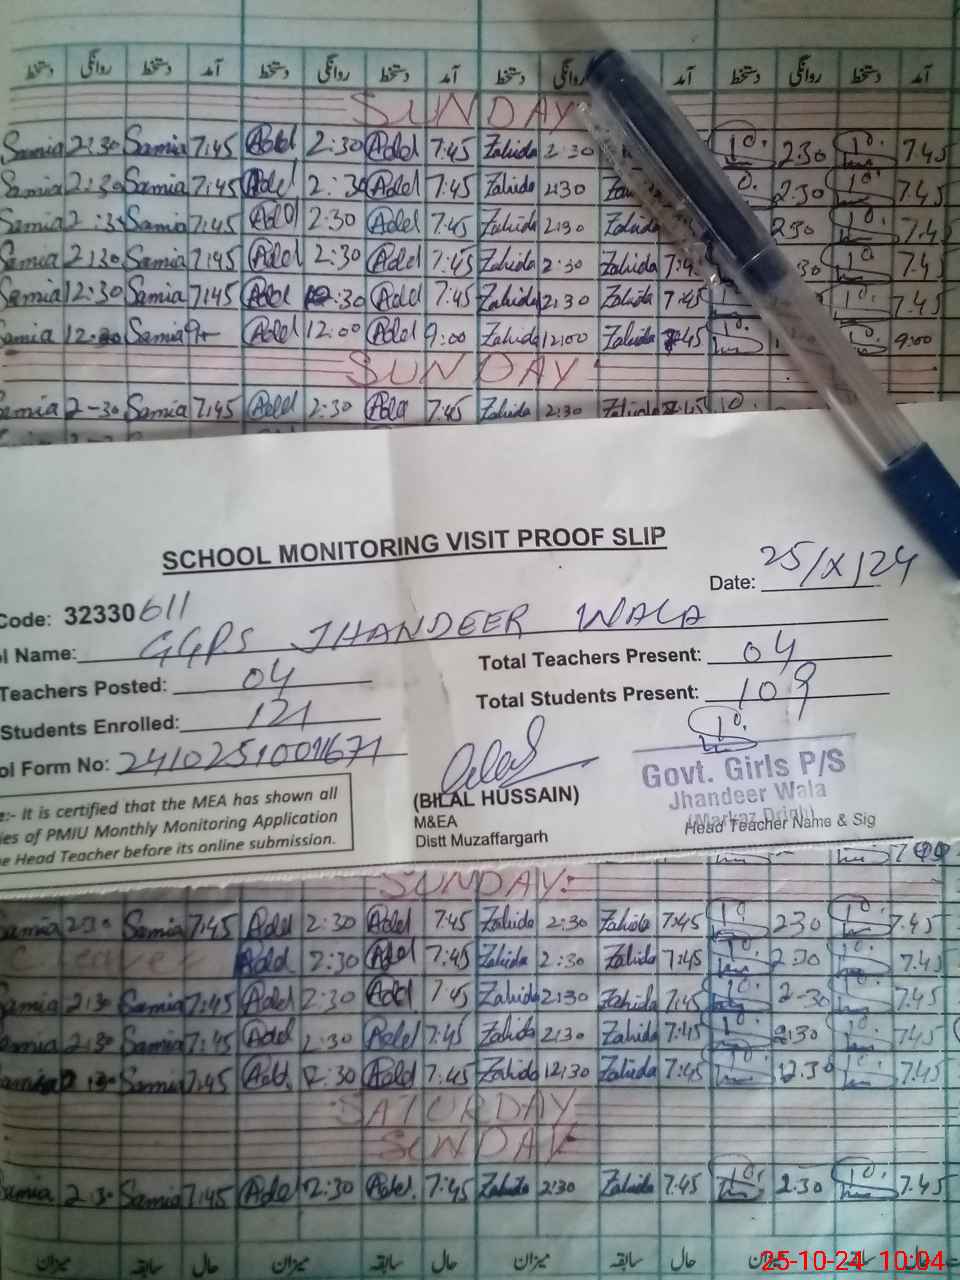 دستخط روانگی دستخط آمد دستخط روانگی دستخط آمد دستخط روانگی آمد دستخط روانگی دستخط آمد
SUNDAY
Samia 2:30 Samia 7:45 Adel 2:30 Adel 7:45 Zahida 2:30 2:30 7.45
Samia 2:30 Samia 7:45 Adel 2:30 Adel 7:45 Zahida 2:30 2:30 7.45
Samia 2:3 Samia 7:45 Adel 2:30 Adel 7:45 Zahida 2:30 Zahida 2:30 7.45
Samia 2:30 Samia 7:45 Adel 2:30 Adel 7:45 Zahida 2:30 Zahida 7:4 30 7.45
Samia 12:30 Samia 7:45 Adel 12:30 Adel 7:45 Zahida 12:30 Zahida 7:45 7.45
Samia 12:30 Samia 9 Adel 12:00 Adel 9:00 Zahida 12:00 Zahida 9:00
SUNDAY
Samia 2-30 Samia 7:45 Adel 2:30 Adel 7:45 Zahida 2:30 Zahida 7:45
SCHOOL MONITORING VISIT PROOF SLIP
Date: 25/X/24
Code: 32330611
l Name: GGPS JHANDEER WALA
Teachers Posted: 04 Total Teachers Present: 04
Students Enrolled: 121 Total Students Present: 109
ol Form No: 24102510011671
e:- It is certified that the MEA has shown all
ies of PMIU Monthly Monitoring Application
e Head Teacher before its online submission.
(BILAL HUSSAIN)
M&EA
Distt Muzaffargarh
Govt. Girls P/S
Jhandeer Wala
(Markaz Drigh)
Head Teacher Name & Sig
SUNDAY:
Samia 2:30 Samia 7:45 Adel 2:30 Adel 7:45 Zahida 2:30 Zahida 7:45 2:30 7.45
C leave Adel 2:30 Adel 7:45 Zahida 2:30 Zahida 7:45 2:30 7.45
Samia 2:30 Samia 7:45 Adel 2:30 Adel 7:45 Zahida 2:30 Zahida 7:45 2-30 7.45
Samia 2:30 Samia 7:45 Adel 2:30 Adel 7:45 Zahida 2:30 Zahida 7:45 2:30 7:45
Samia 12:30 Samia 7:45 Adel 12:30 Adel 7:45 Zahida 12:30 Zahida 7:45 12.30 7.45
SATURDAY
SUNDAY
Samia 2:30 Samia 7:45 Adel 2:30 Adel 7:45 Zahida 2:30 Zahida 7:45 2:30 7.45
میزان سابقہ حال میزان سابقہ حال میزان سابقہ حال میزان سابقہ حال
25-10-24 10:04